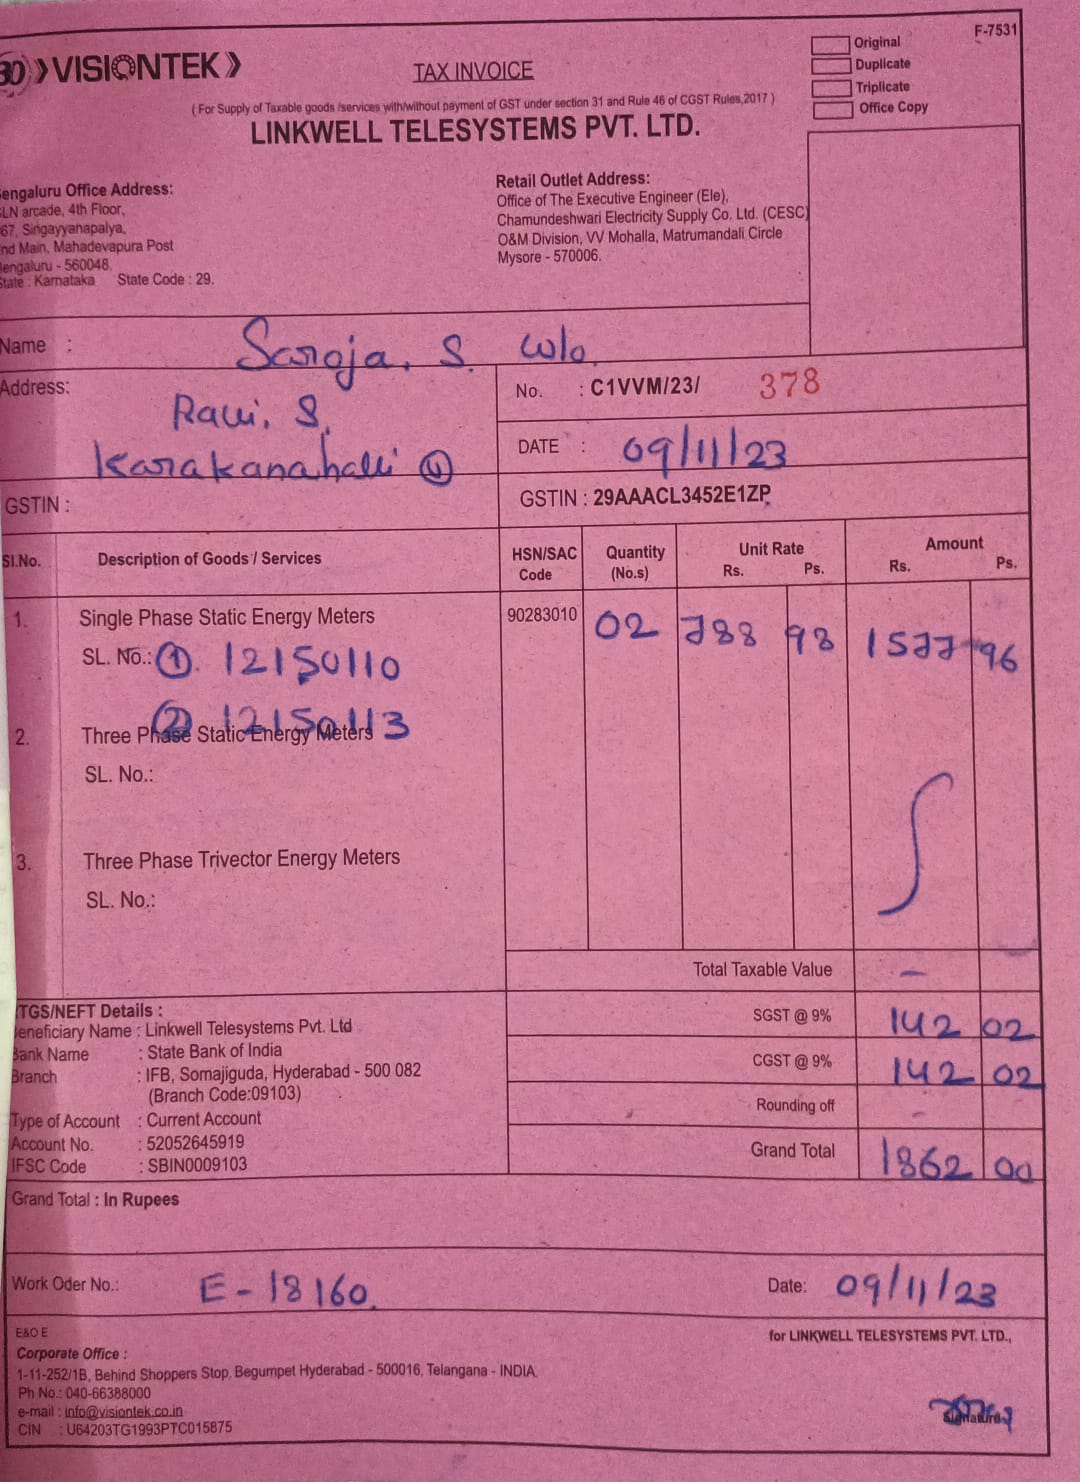 F-7531
VISIONTEK
TAX INVOICE
Original
Duplicate
Triplicate
Office Copy
( For Supply of Taxable goods /services with/without payment of GST under section 31 and Rule 46 of CGST Rules,2017 )
LINKWELL TELESYSTEMS PVT. LTD.
engaluru Office Address:
LN arcade, 4th Floor,
67, Singayyanapalya,
nd Main, Mahadevapura Post
engaluru - 560048.
State : Karnataka State Code : 29.
Retail Outlet Address:
Office of The Executive Engineer (Ele),
Chamundeshwari Electricity Supply Co. Ltd. (CESC)
O&M Division, VV Mohalla, Matrumandali Circle
Mysore - 570006.
Name : Saroja. S. W/o.
Address: Ravi. S.
Karakanahalli (v)
No. : C1VVM/23/ 378
DATE : 09/11/23
GSTIN :
GSTIN : 29AAACL3452E1ZP
Sl.No. Description of Goods / Services HSN/SAC Code Quantity (No.s) Unit Rate Rs. Ps. Amount Rs. Ps.
1. Single Phase Static Energy Meters 90283010 02 788 98 1577 96
SL. No.: ①. 12150110
② 12150113
2. Three Phase Static Energy Meters
SL. No.:
3. Three Phase Trivector Energy Meters
SL. No.:
Total Taxable Value -
SGST @ 9% 142 02
CGST @ 9% 142 02
Rounding off -
Grand Total 1862 00
TGS/NEFT Details :
Beneficiary Name : Linkwell Telesystems Pvt. Ltd
Bank Name : State Bank of India
Branch : IFB, Somajiguda, Hyderabad - 500 082
(Branch Code:09103)
Type of Account : Current Account
Account No. : 52052645919
IFSC Code : SBIN0009103
Grand Total : In Rupees
Work Oder No.: E-18160.
Date: 09/11/23
E&O E
for LINKWELL TELESYSTEMS PVT. LTD.,
Corporate Office :
1-11-252/1B, Behind Shoppers Stop, Begumpet Hyderabad - 500016, Telangana - INDIA.
Ph No.: 040-66388000
e-mail : info@visiontek.co.in
CIN : U64203TG1993PTC015875
Signature